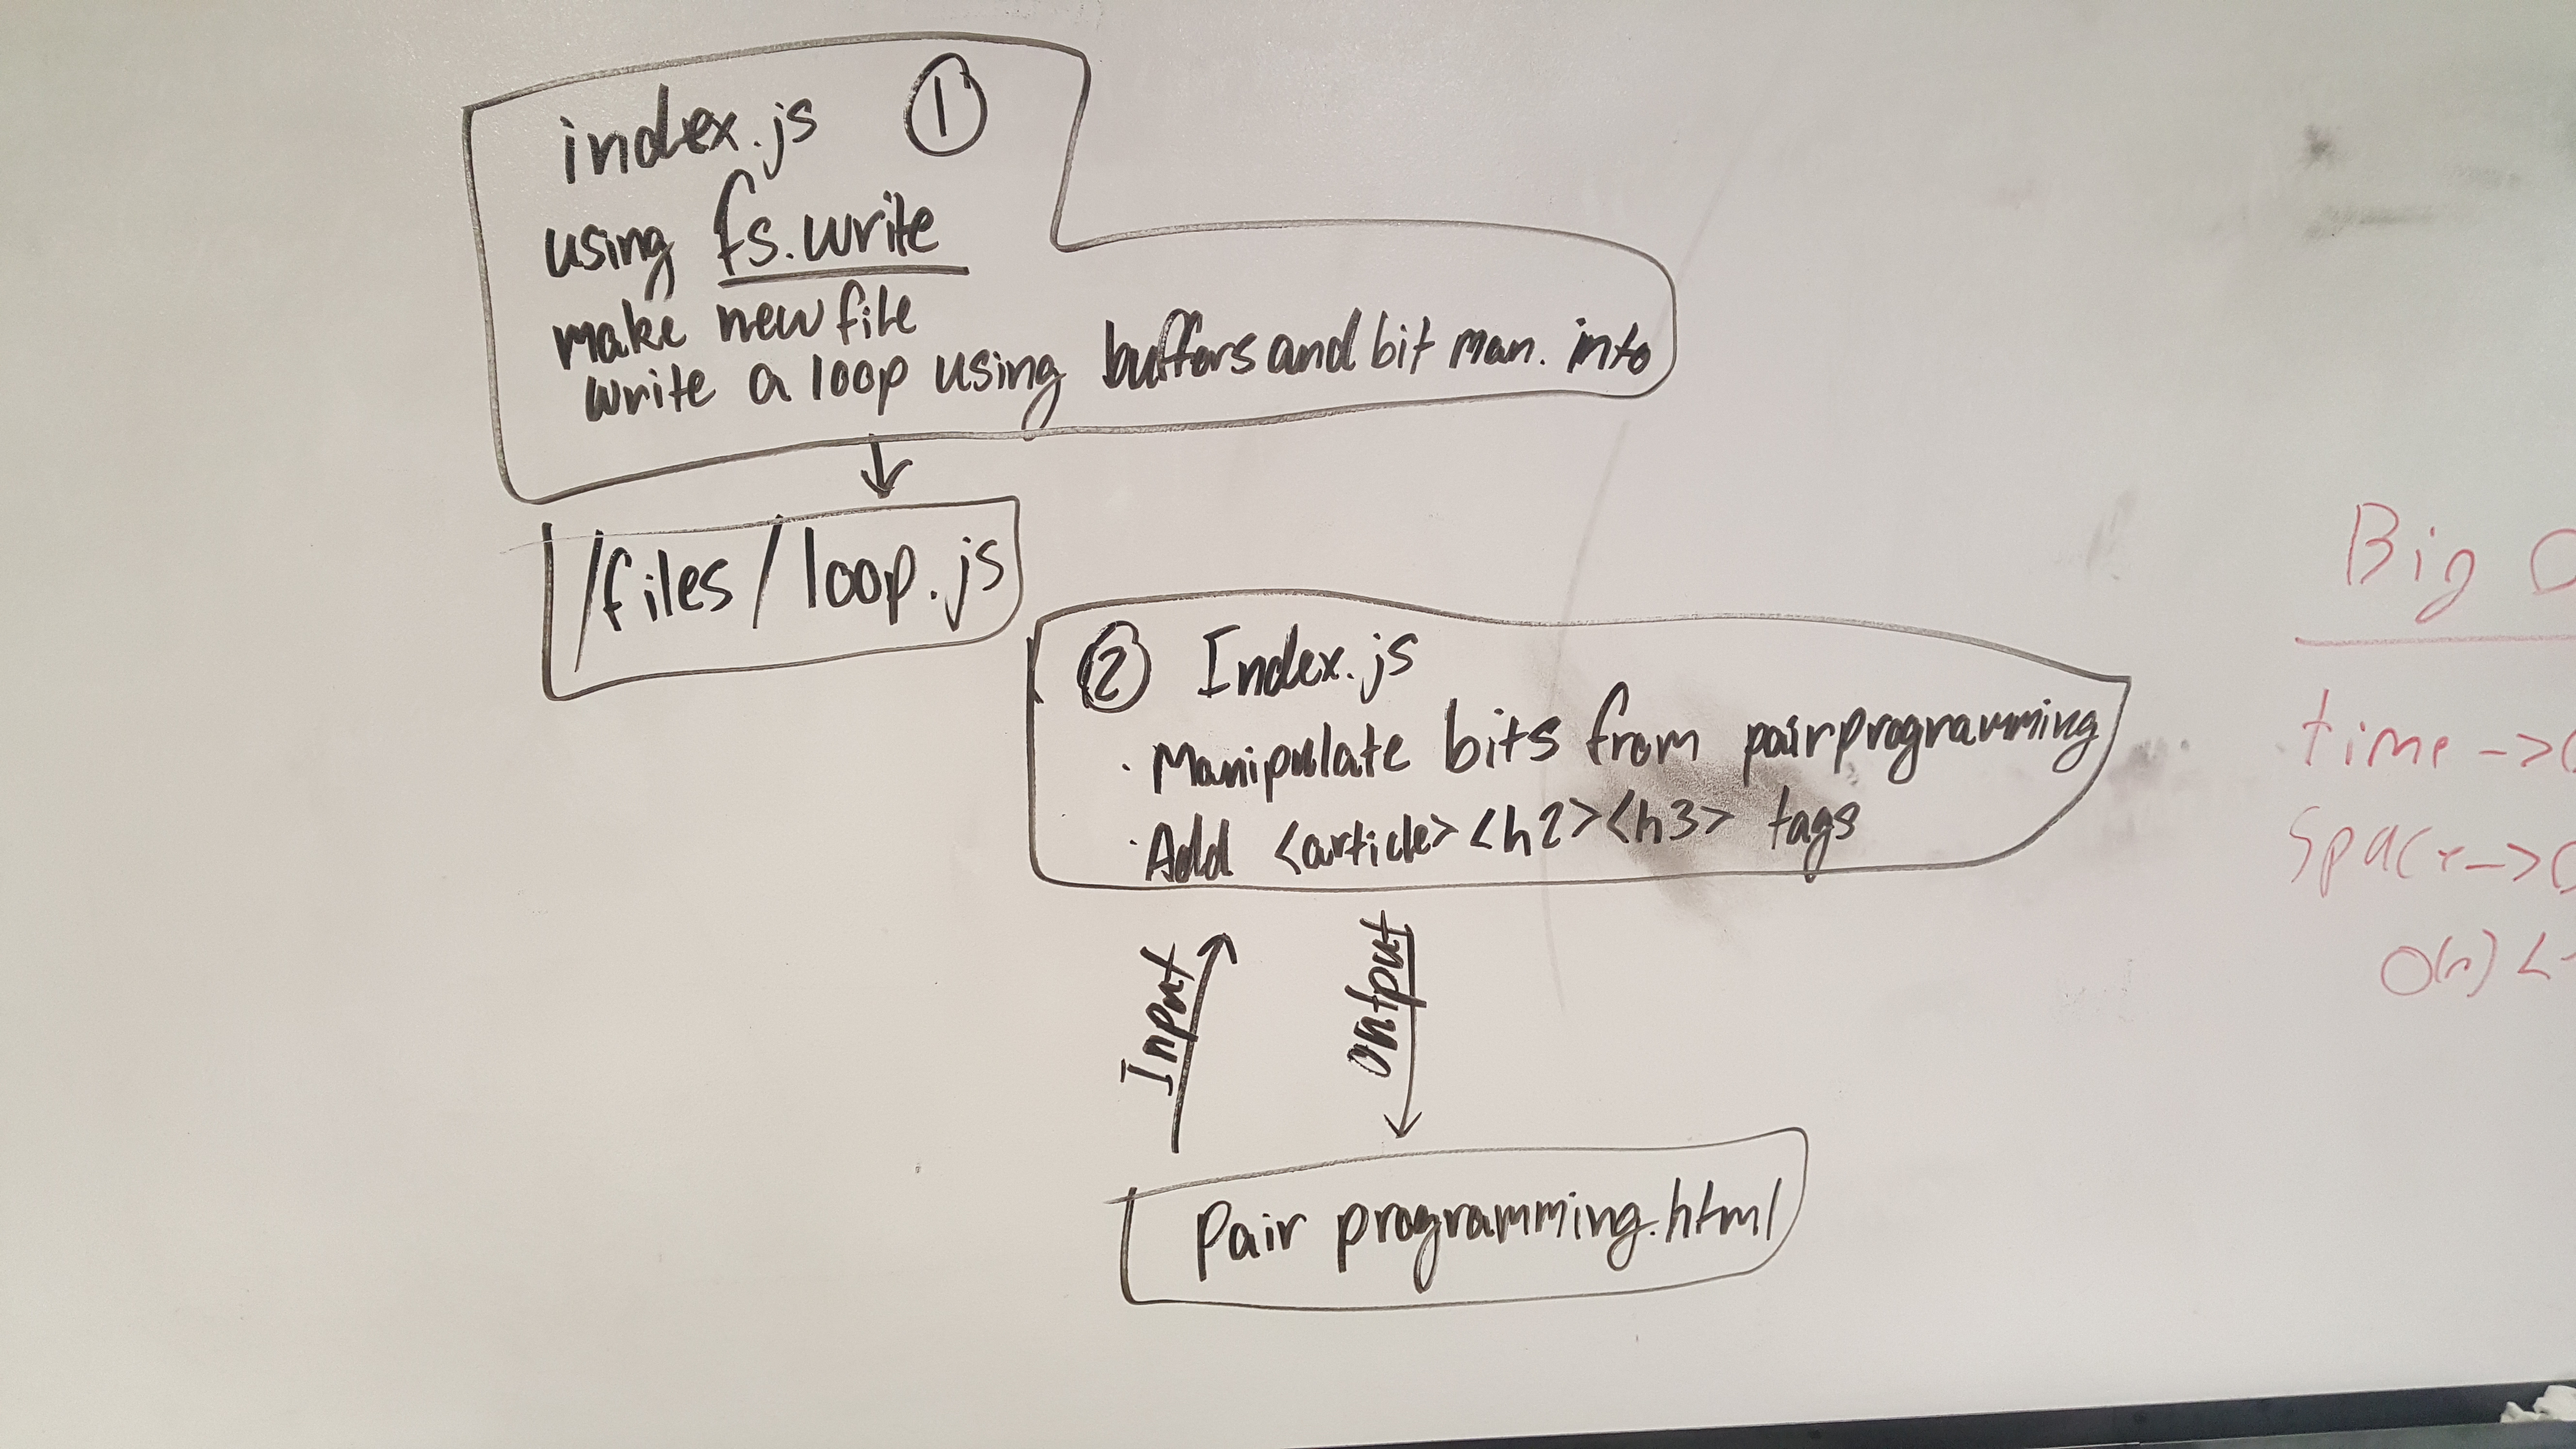 index.js ①
using fs.write
make new file
write a loop using buffers and bit man. into
/files/loop.js
② Index.js
· Manipulate bits from pairprogramming
· Add <article><h2><h3> tags
Input
output
Pair programming.html
Big O
time ->
Space ->
O(n) <